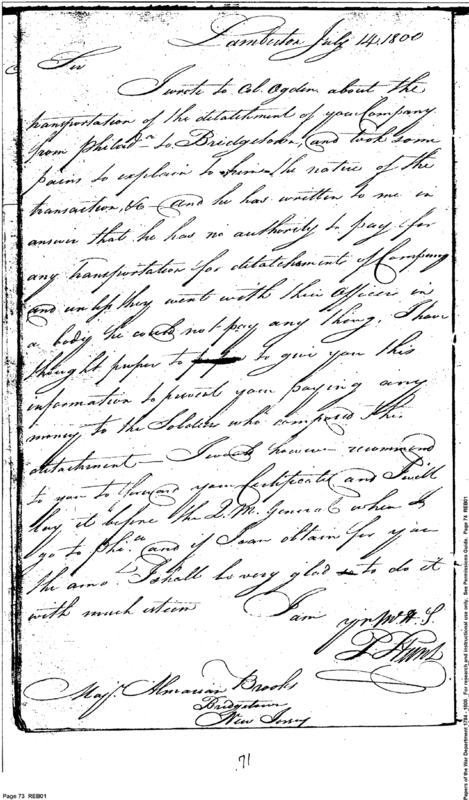 Lamberton July 14, 1800
Sir
I wrote to Col. Ogden about the
transportation of the detatchment of your Company
from Philad.a to Bridgetown, and took some
pains to explain to him the nature of the
transaction, &c - and he has written to me in
answer that he has no authority to pay for
any transportation for detatchments of Company
and unless they went with their Officer in
a body he could not pay any thing, I have
thought proper to to give you this
information to prevent your paying any
money to the Soldiers who composed the
detachment - I would however recommend
to you to forward your Certificate and I will
lay it before the Q. M. General when I
go to Phi.a and if I can obtain for you
the amo.t I shall be very glad to do it
with much esteem I am
yr Mo. H. S.
Hunt
Maj.r Almarian Brooks
Bridgetown
New Jersey
71
Page 73 REB01
Papers of the War Department 1784 - 1800. For research and instructional use only. See Permissions Guide. Page 74 REB01